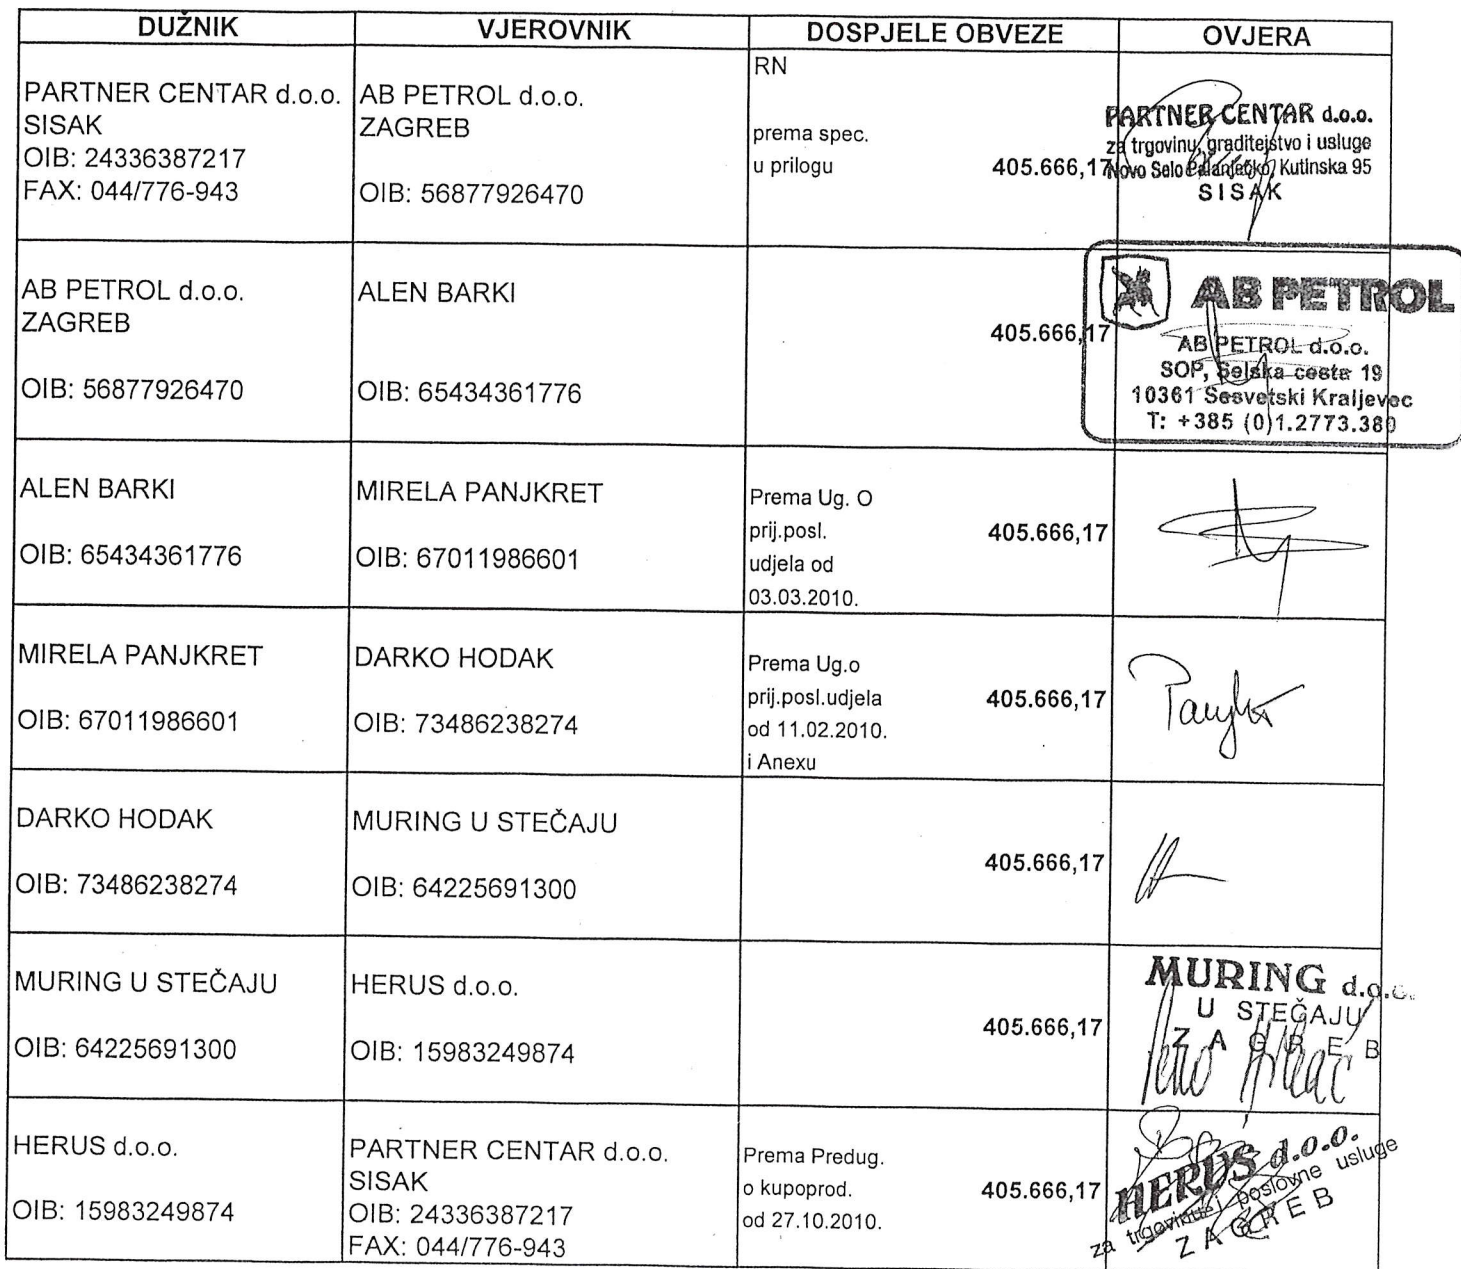 DUŽNIK VJEROVNIK DOSPJELE OBVEZE OVJERA
PARTNER CENTAR d.o.o.
SISAK
OIB: 24336387217
FAX: 044/776-943
AB PETROL d.o.o.
ZAGREB
OIB: 56877926470
RN
prema spec.
u prilogu 405.666,17
PARTNER CENTAR d.o.o.
za trgovinu, graditejstvo i usluge
Novo Selo Palanječko, Kutinska 95
SISAK
AB PETROL d.o.o.
ZAGREB
OIB: 56877926470
ALEN BARKI
OIB: 65434361776
405.666,17
AB PETROL
AB PETROL d.o.o.
SOP, Selska cesta 19
10361 Sesvetski Kraljevec
T: +385 (0)1.2773.380
ALEN BARKI
OIB: 65434361776
MIRELA PANJKRET
OIB: 67011986601
Prema Ug. O
prij.posl. 405.666,17
udjela od
03.03.2010.
MIRELA PANJKRET
OIB: 67011986601
DARKO HODAK
OIB: 73486238274
Prema Ug.o
prij.posl.udjela 405.666,17
od 11.02.2010.
i Anexu
DARKO HODAK
OIB: 73486238274
MURING U STEČAJU
OIB: 64225691300
405.666,17
MURING U STEČAJU
OIB: 64225691300
HERUS d.o.o.
OIB: 15983249874
405.666,17
MURING d.o.o.
U STEČAJU
ZAGREB
HERUS d.o.o.
OIB: 15983249874
PARTNER CENTAR d.o.o.
SISAK
OIB: 24336387217
FAX: 044/776-943
Prema Predug.
o kupoprod. 405.666,17
od 27.10.2010.
HERUS d.o.o.
za trgovinu i poslovne usluge
ZAGREB